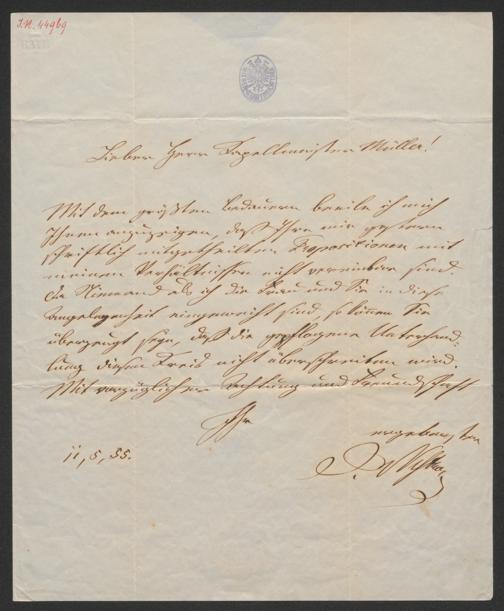 I.N. 44969
Lieber Herr Kapellmeister Müller!
Mit dem größten Bedauern beeile ich mich
Ihnen anzuzeigen, daß Ihre mir gestern
schriftlich mitgetheilten Propositionen mit
meinen Verhältnissen nicht vereinbar sind.
Da Niemand als ich die Frau und Sie in diese
Angelegenheit eingeweiht sind, so können Sie
überzeugt sein, daß die gepflogene Unterhand-
lung diesen Kreis nicht überschreiten wird.
Mit vorzüglicher Achtung und Freundschaft
Ihr
ergebenster
11/5/55.